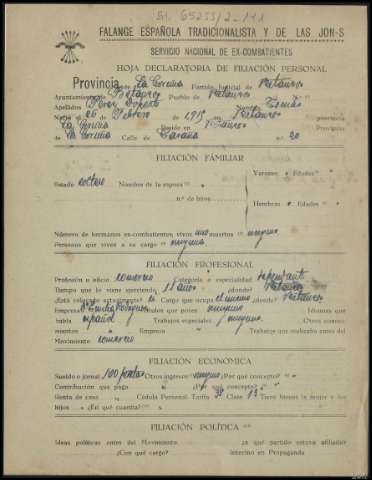 FALANGE ESPAÑOLA TRADICIONALISTA Y DE LAS JON-S
SERVICIO NACIONAL DE EX-COMBATIENTES
HOJA DECLARATORIA DE FILIACIÓN PERSONAL
Provincia de La Coruña Partido Judicial de Betanzos
Ayuntamiento de Betanzos Pueblo de Betanzos
Apellidos Pérez Tomás
Nació el 26 Febrero de 1915 Betanzos provincia
La Coruña Reside en Betanzos Provincia
de La Coruña Calle de nº 20
FILIACIÓN FAMILIAR
Varones " Edades "
Estado soltero Nombres de la esposa "
n.º de hijos
Hembras " Edades "
Número de hermanos ex-combatientes, vivos uno muertos " ninguno
Personas que viven a su cargo " ninguna
FILIACIÓN PROFESIONAL
Profesión u oficio comercio Categoría o especialidad dependiente
Tiempo que lo viene ejerciendo 11 años ¿dónde? Betanzos
¿Está colocado actualmente? si Cargo que ocupa el mismo ¿dónde? Betanzos
Empresa que posee ninguno Idiomas que
habla español Trabajos especiales ninguno Otros conoci-
mientos " Empresa " Trabajos que realizaba antes del
Movimiento comercio
FILIACIÓN ECONÓMICA
Sueldo o jornal 100 Otros ingresos ninguno ¿Por qué concepto? "
Contribución que paga " ¿Por qué concepto? "
Renta de casa " Cédula Personal Tarifa Clase 13ª Tiene bienes la mujer o los
hijos " ¿En qué cuantía? "
FILIACIÓN POLÍTICA
Ideas políticas antes del Movimiento ¿a qué partido estuvo afiliado?
¿Con qué cargo? Intervino en Propaganda